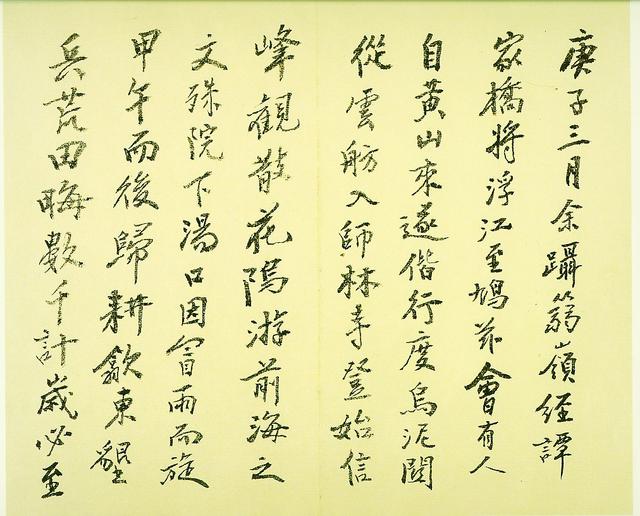 庚子三月余躡篛嶺經譚
家橋將浮江至鳩茲會有人
自黃山來遂偕行度烏泥關
從雲舫入師林寺登始信
峰觀散花隖游前海之
文殊院下湯口因冒雨而旋
甲午而後歸耕歙東壆
兵荒田畮數千計歲必至